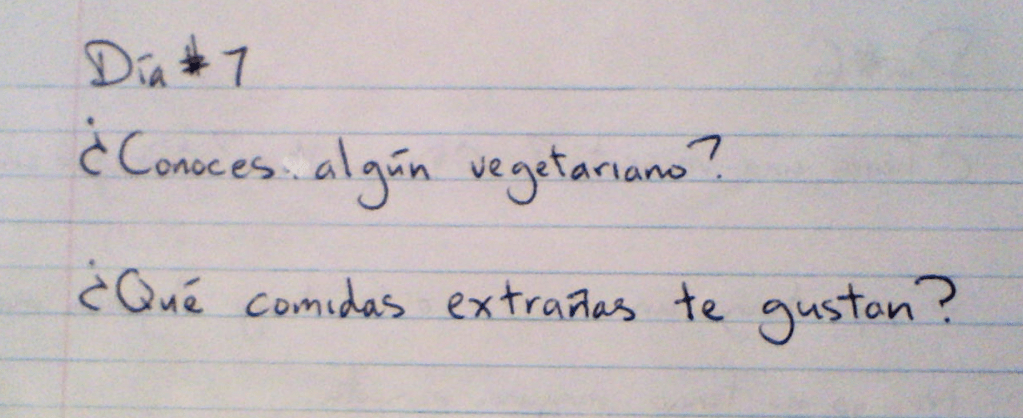 Día # 7
¿Conoces algún vegetariano?
¿Qué comidas extrañas te gustan?